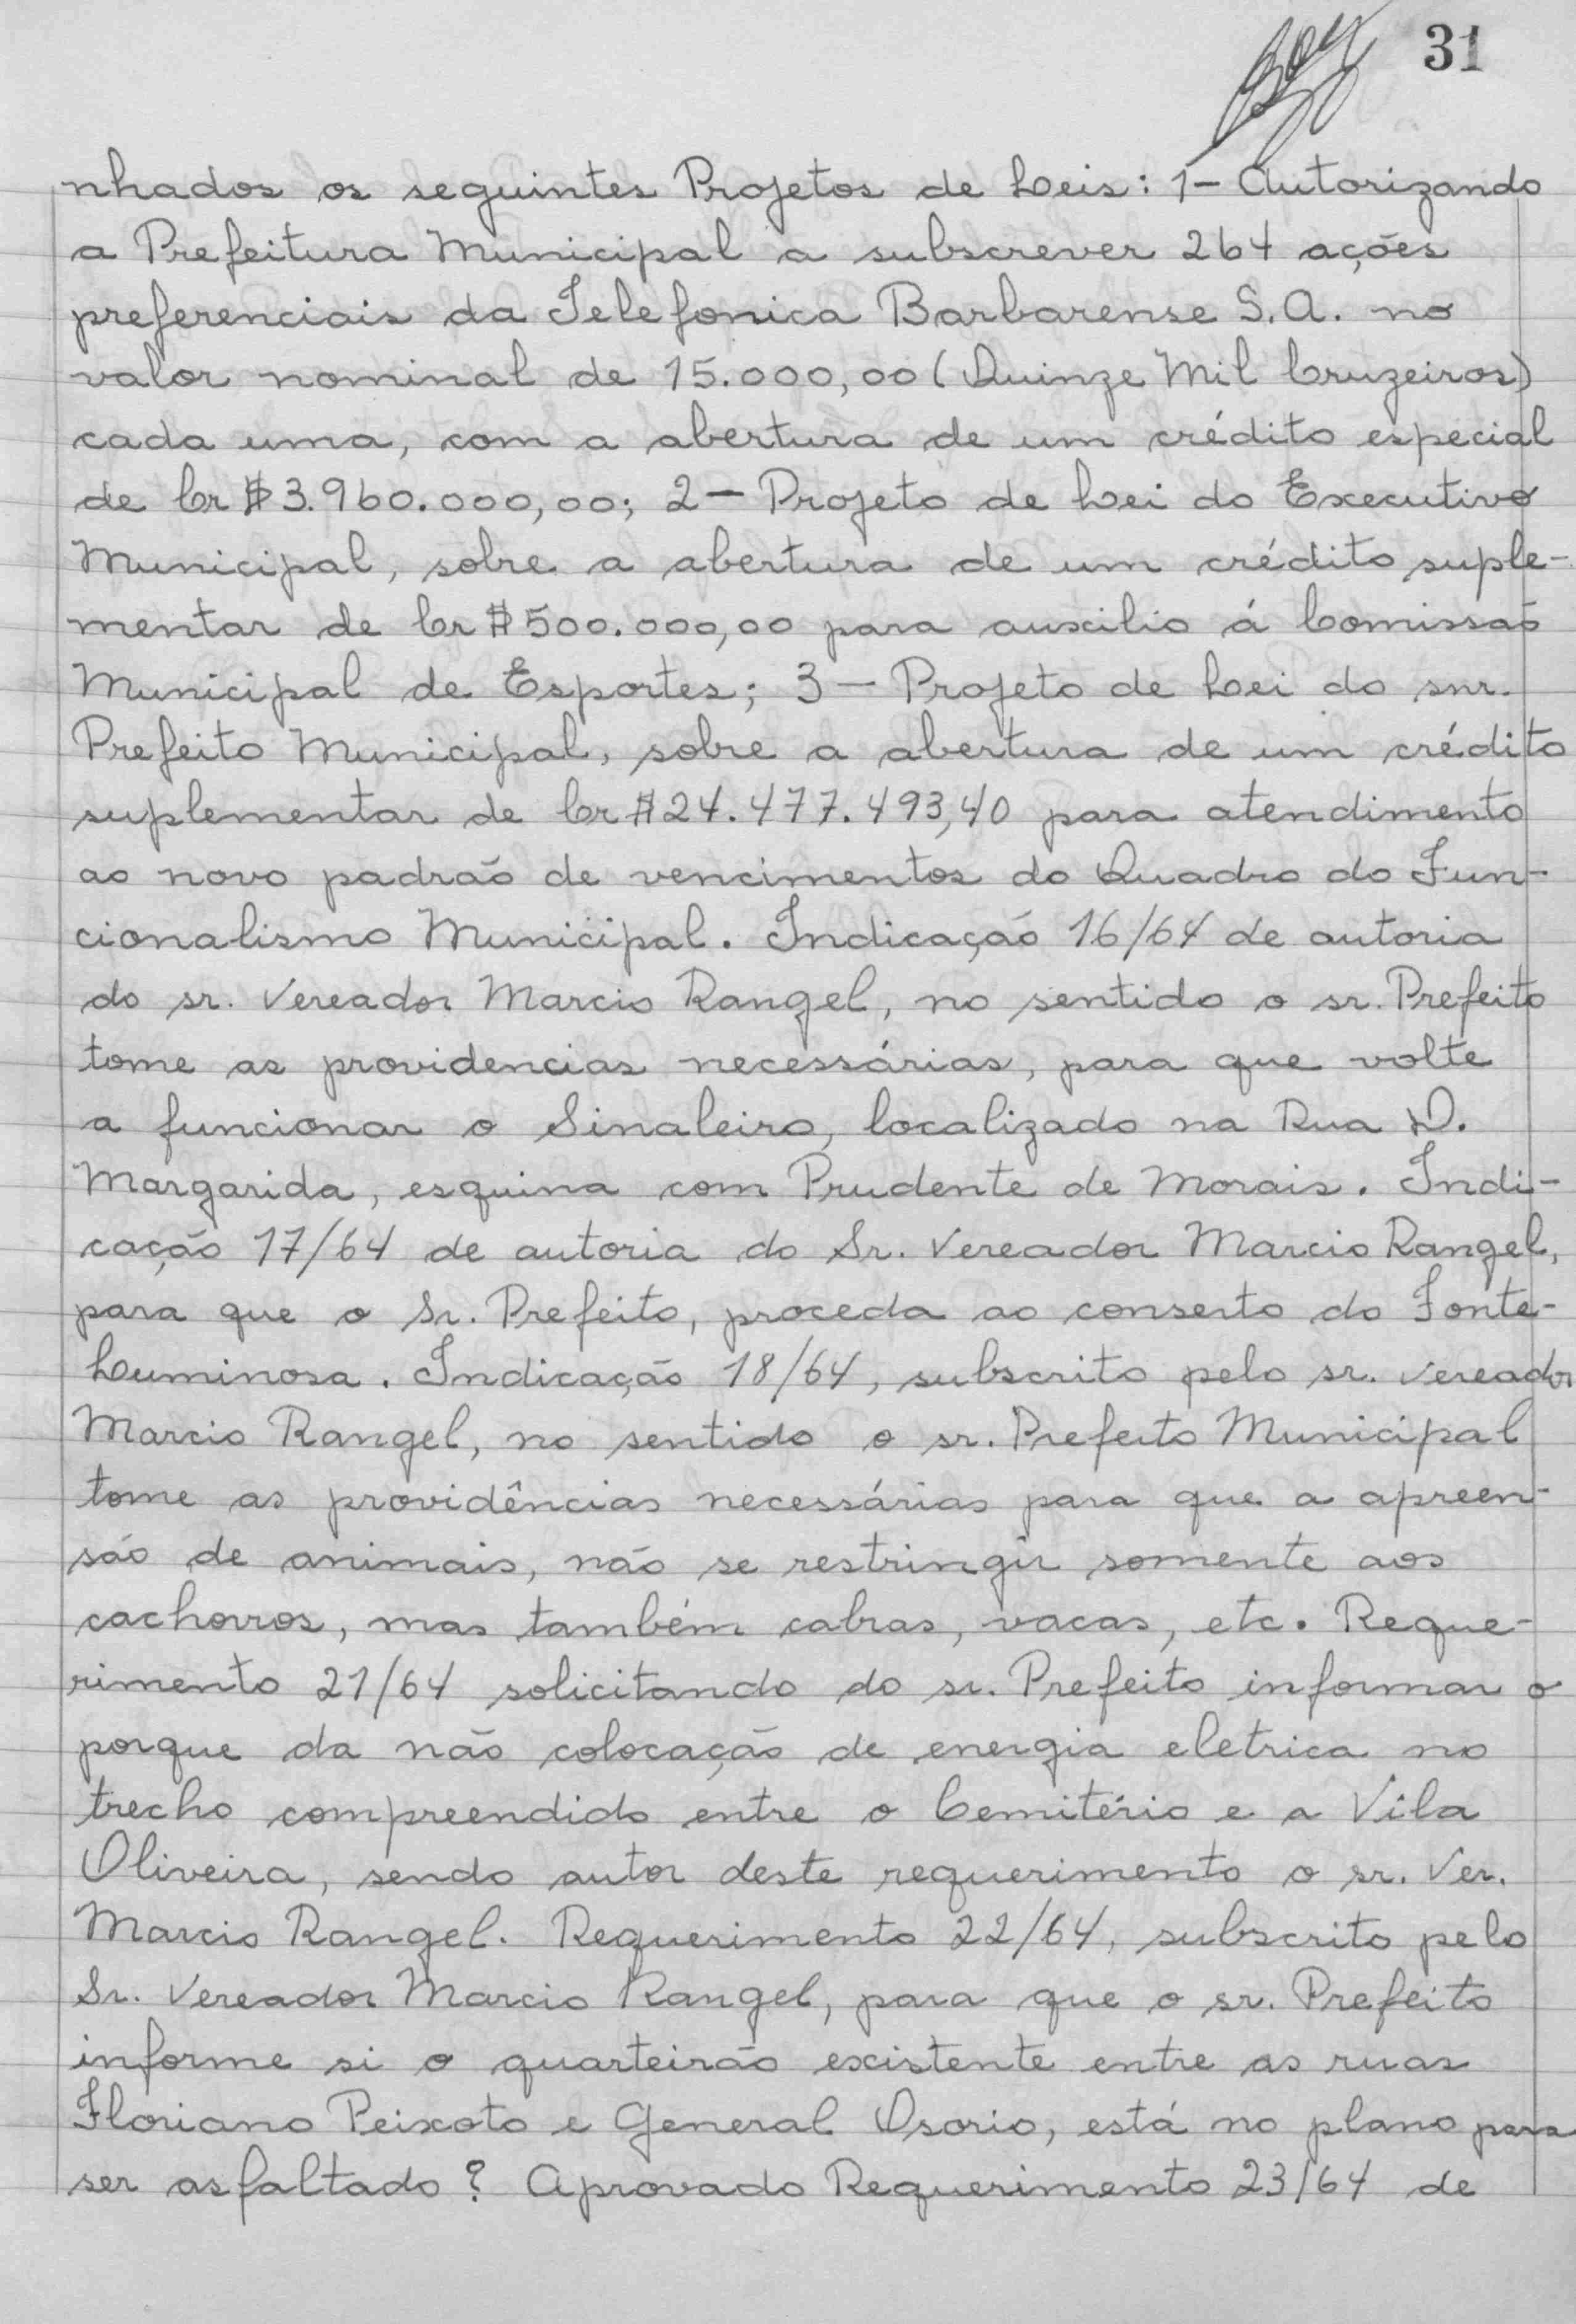 31
nhados os seguintes Projetos de Leis: 1- Autorizando
a Prefeitura Municipal a subscrever 264 ações
preferenciais da Telefonica Barbarense S.A. no
valor nominal de 15.000,00 (Quinze Mil Cruzeiros)
cada uma, com a abertura de um crédito especial
de Cr$ 3.960.000,00; 2- Projeto de Lei do Executivo
Municipal, sobre a abertura de um crédito suple-
mentar de Cr$ 500.000,00 para auxilio á Comissão
Municipal de Esportes; 3- Projeto de Lei do snr.
Prefeito Municipal, sobre a abertura de um crédito
suplementar de Cr$ 24.477.493,40 para atendimento
ao novo padrão de vencimentos do Quadro do Fun-
cionalismo Municipal. Indicação 16/64 de autoria
do sr. Vereador Marcio Rangel, no sentido o sr. Prefeito
tome as providencias necessárias, para que volte
a funcionar o Sinaleiro, localizado na Rua D.
Margarida, esquina com Prudente de Morais. Indi-
cação 17/64 de autoria do Sr. Vereador Marcio Rangel,
para que o Sr. Prefeito, proceda ao conserto do Fonte-
Luminosa. Indicação 18/64, subscrito pelo sr. Vereador
Marcio Rangel, no sentido o sr. Prefeito Municipal
tome as providências necessárias para que a apreen-
são de animais, não se restringir somente aos
cachorros, mas também cabras, vacas, etc. Reque-
rimento 21/64 solicitando do sr. Prefeito informar o
porque da não colocação de energia eletrica no
trecho compreendido entre o Cemitério e a Vila
Oliveira, sendo autor deste requerimento o sr. Ver.
Marcio Rangel. Requerimento 22/64, subscrito pelo
Sr. Vereador Marcio Rangel, para que o sr. Prefeito
informe si o quarteirão existente entre as ruas
Floriano Peixoto e General Osorio, está no plano para
ser asfaltado? Aprovado Requerimento 23/64 de